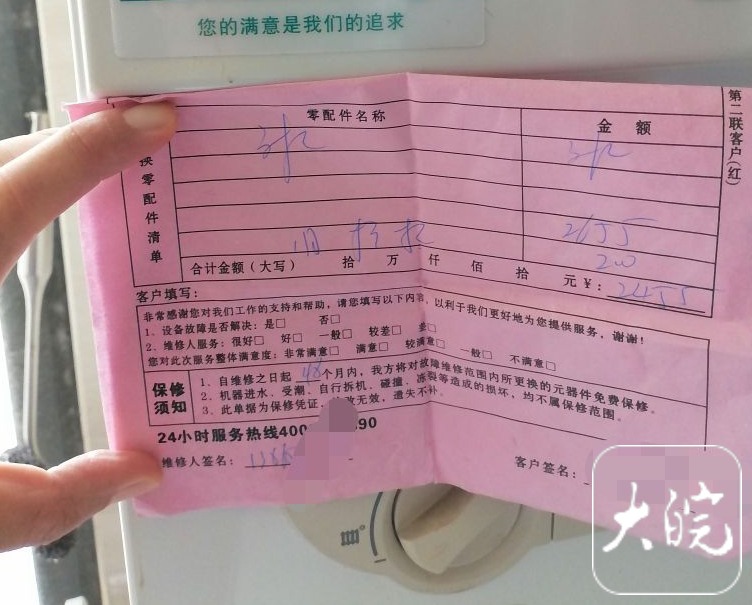 您的满意是我们的追求
第二联客户(红)
换零配件清单
零配件名称
金 额
2655
旧 折扣
200
合计金额(大写) 拾 万 仟 佰 拾 元¥: 2455
客户填写:
非常感谢您对我们工作的支持和帮助,请您填写以下内容,以利于我们更好地为您提供服务,谢谢!
1、设备故障是否解决:是□ 否□
2、维修人服务:很好□ 好□ 一般□ 较差□ 差□
您对此次服务整体满意度:非常满意□ 满意□ 较满意□ 一般□ 不满意□
保修须知
1、自维修之日起 个月内,我方将对故障维修范围内所更换的元器件免费保修。
2、机器进水、受潮、自行拆机、碰撞、冻裂等造成的损坏,均不属保修范围。
3、此单据为保修凭证,改无效,遗失不补。
24小时服务热线400 90
维修人签名:
客户签名:
大皖